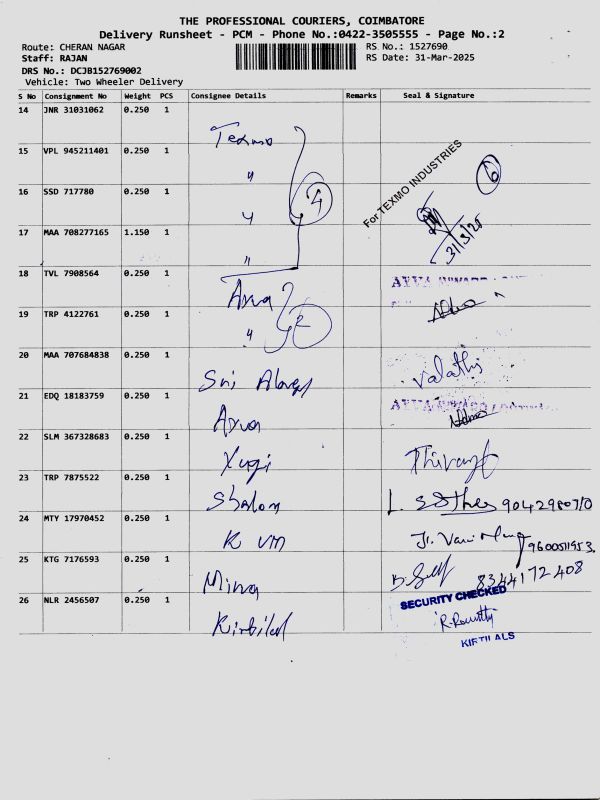 THE PROFESSIONAL COURIERS, COIMBATORE
Delivery Runsheet - PCM - Phone No.:0422-3505555 - Page No.:2
Route: CHERAN NAGAR RS No.: 1527690
Staff: RAJAN RS Date: 31-Mar-2025
DRS No.: DCJB152769002
Vehicle: Two Wheeler Delivery
S No Consignment No Weight PCS Consignee Details Remarks Seal & Signature
14 JNR 31031062 0.250 1 Texmo
15 VPL 945211401 0.250 1 "
For TEXMO INDUSTRIES 6
16 SSD 717780 0.250 1 " 4
17 MAA 708277165 1.150 1 " 31/3/25
18 TVL 7908564 0.250 1
19 TRP 4122761 0.250 1 " 2
20 MAA 707684838 0.250 1 Sri
21 EDQ 18183759 0.250 1
22 SLM 367328683 0.250 1 Yugi
23 TRP 7875522 0.250 1 Shalom
24 MTY 17970452 0.250 1 K VM
25 KTG 7176593 0.250 1 Mina 8344172408
26 NLR 2456507 0.250 1
SECURITY CHECKED
KIRTILALS